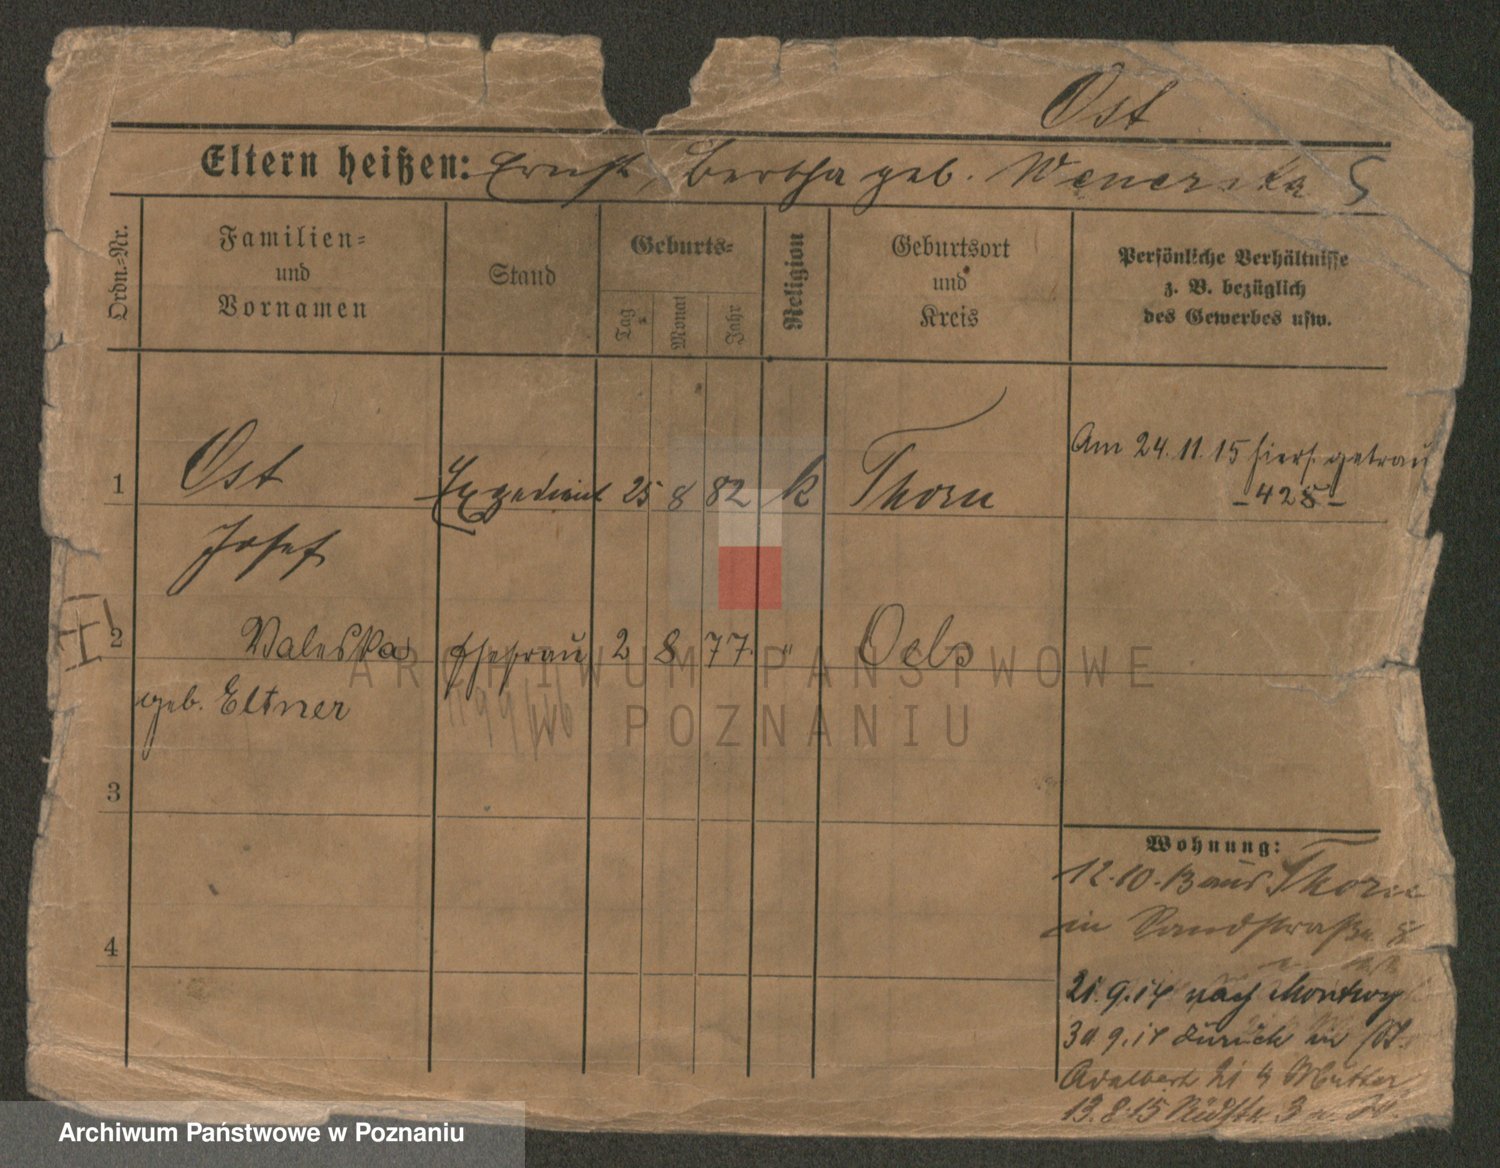 Ost
Eltern heißen: Ernst, Bertha geb.
Ordn.-Nr.
Familien-
und
Vornamen
Stand
Geburts-
Tag
Monat
Jahr
Religion
Geburtsort
und
Kreis
Persönliche Verhältnisse
z. B. bezüglich
des Gewerbes usw.
1
Ost
Expedient 25 8 82 k Thorn
Am 24.11.15 hiers. getraut
- 428 -
Josef
2
Valeska Ehefrau 2 8 77 " Oels
geb. Eltner
3
4
Wohnung:
12.10.13 aus Thorn
in
21.9.14 nach Montwy
30 9.14 zurück in St.
Adalbert 21 b Mutter
13.8.15
ARCHIWUM PAŃSTWOWE
W POZNANIU
Archiwum Państwowe w Poznaniu